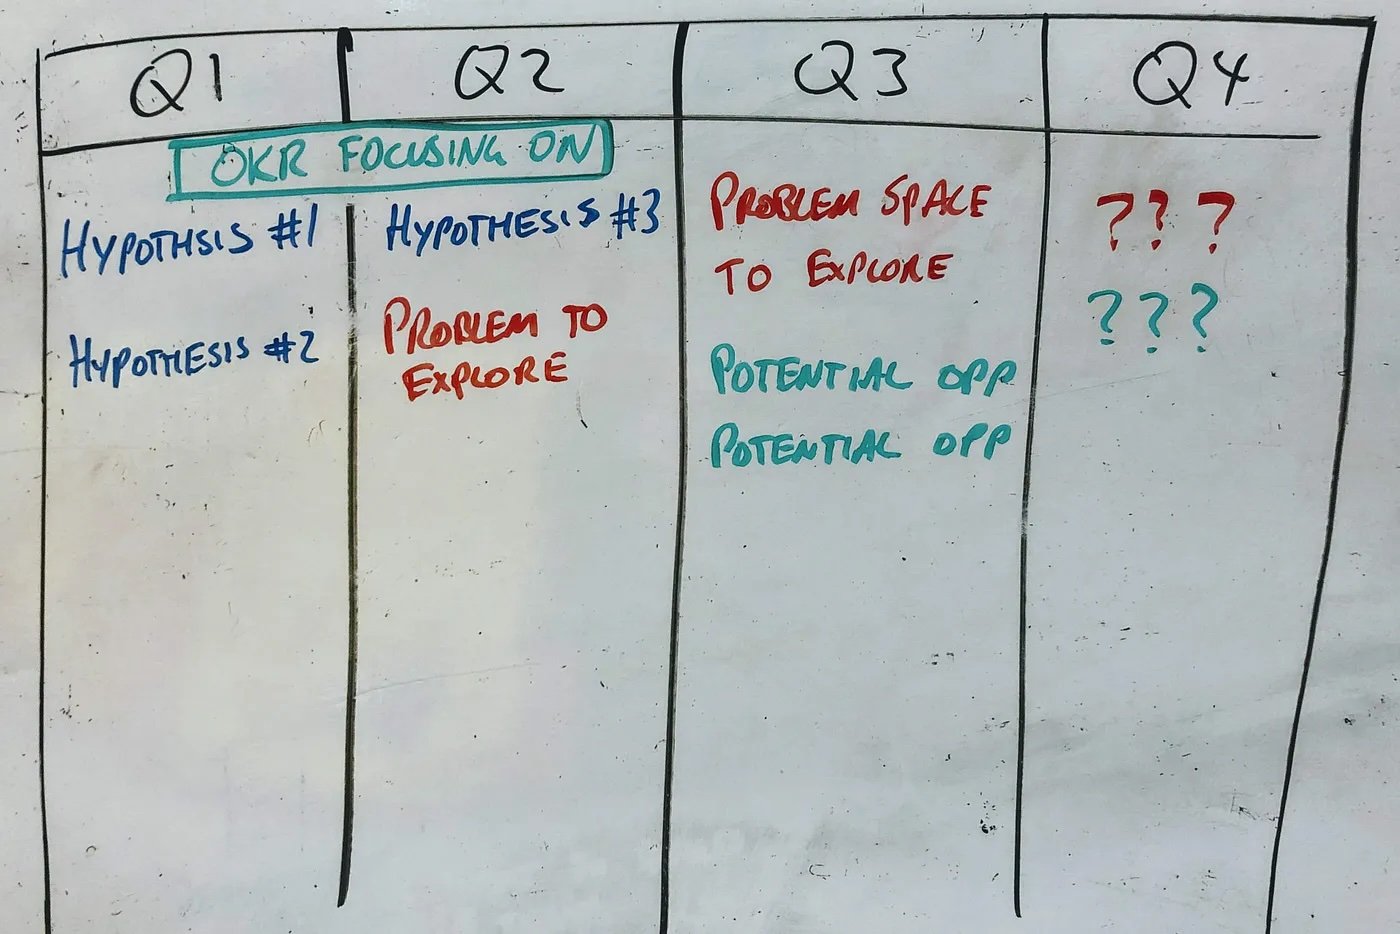 Q1
Q2
Q3
Q4
OKR FOCUSING ON
HYPOTHSIS #1
HYPOTHESIS #2
HYPOTHESIS #3
PROBLEM TO
EXPLORE
PROBLEM SPACE
TO EXPLORE
POTENTIAL OPP
POTENTIAL OPP
???
???